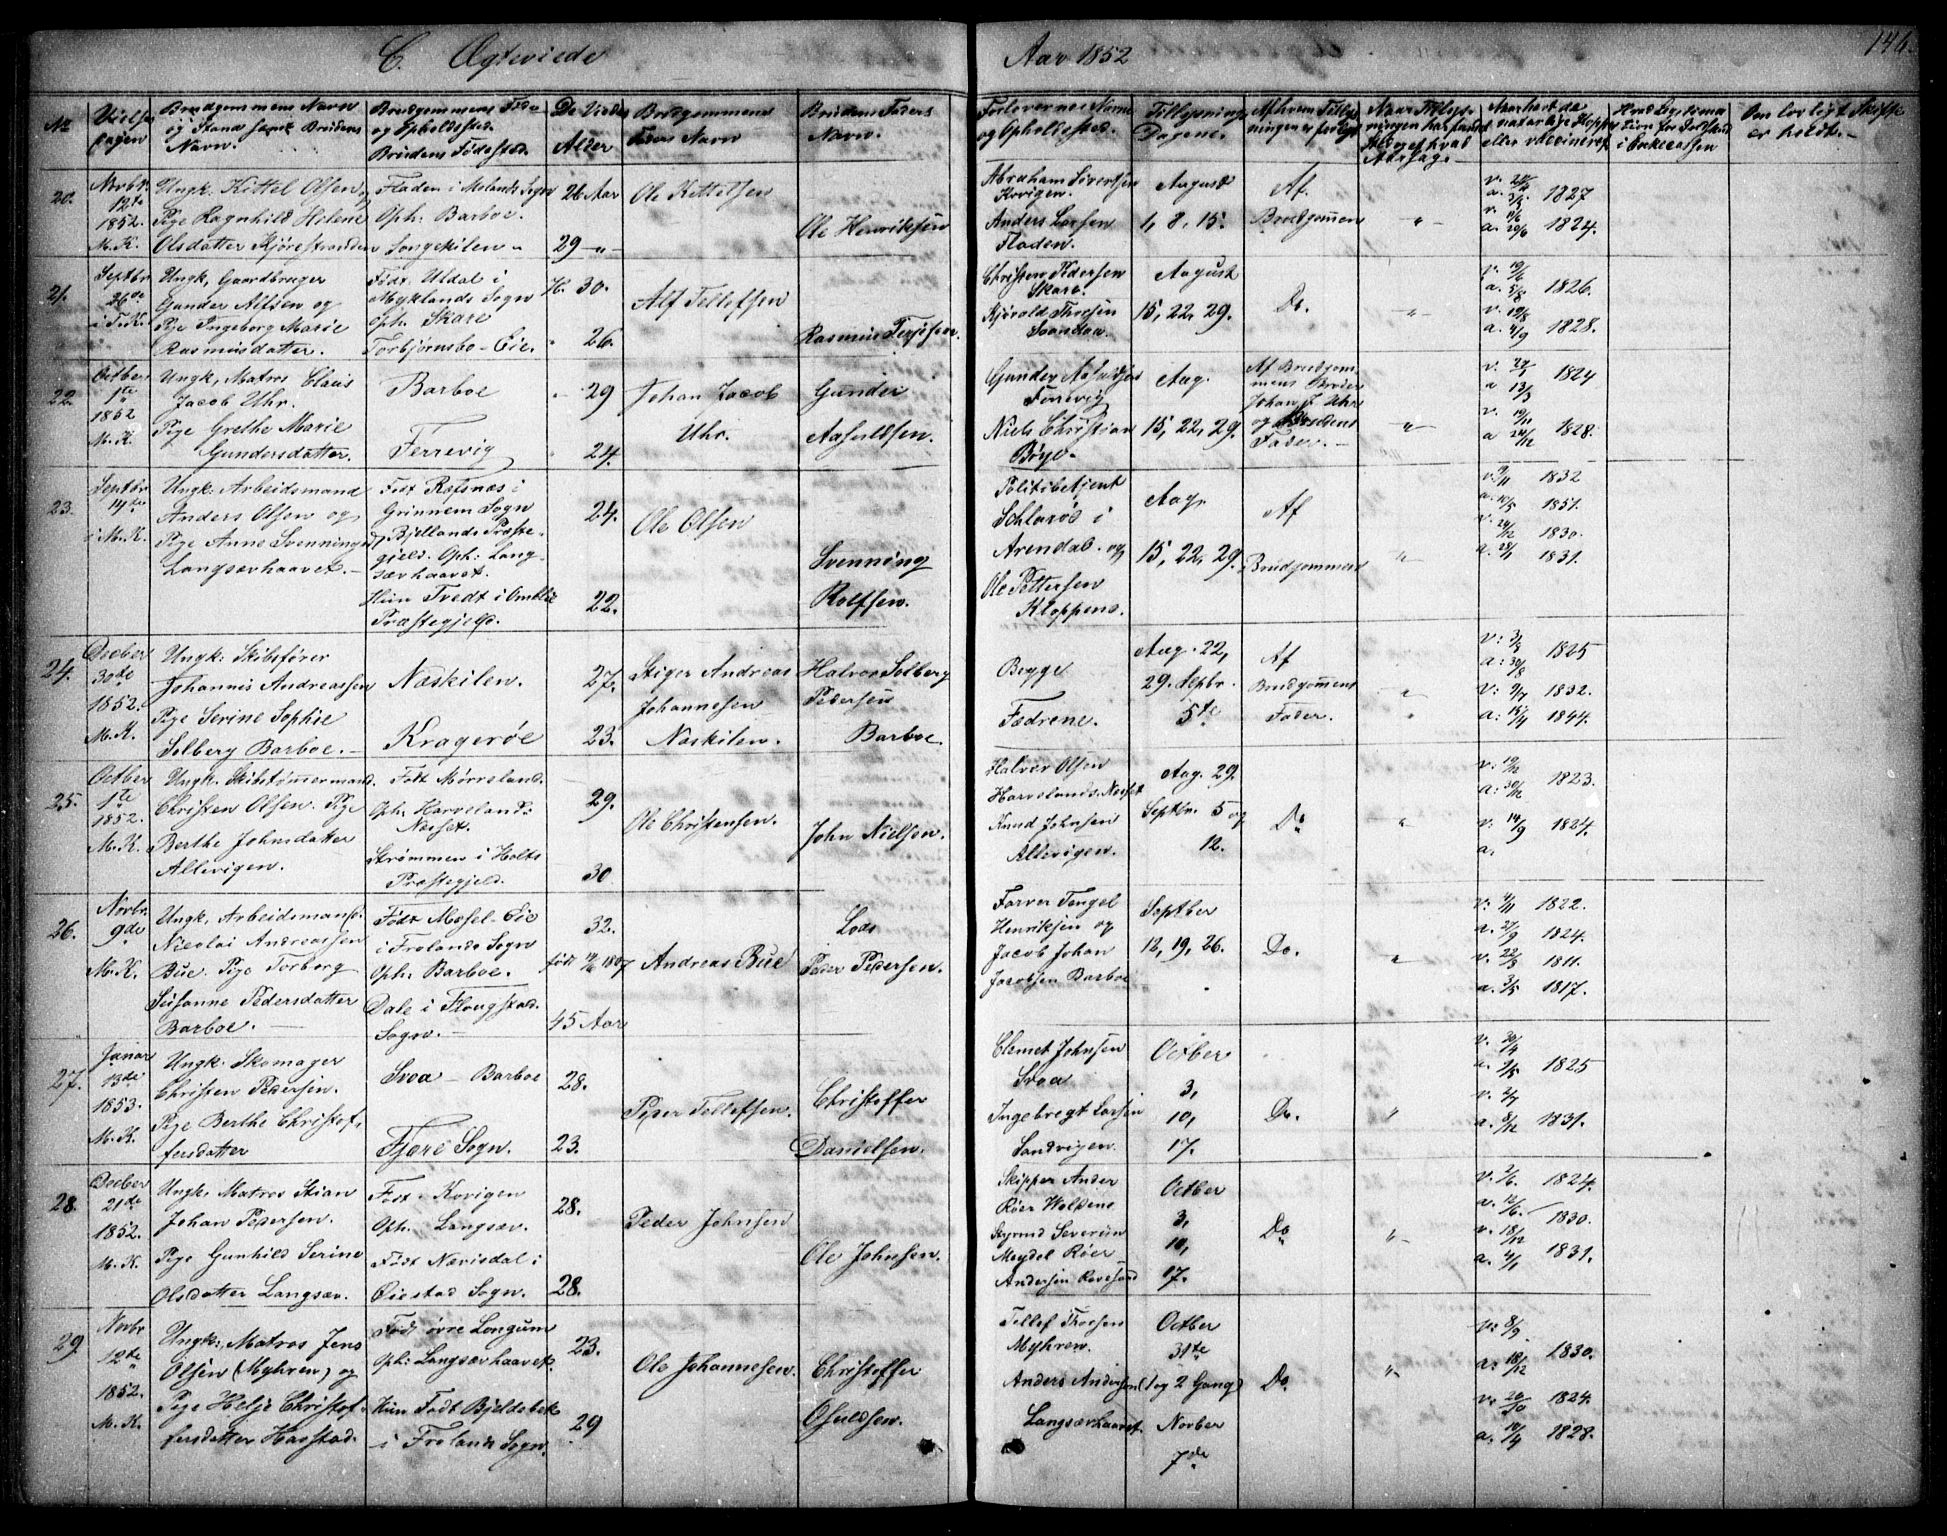 C. Ægteviede
Aar 1852
146.
No
Vielses
dagen
Brudgommens Navn
og Stand samt Brudens
Navn.
Brudgommens Føde
og Opholdssted.
Brudens Fødested.
De Viedes
Alder
Brudgommens
Faders Navn
Brudens Faders
Navn.
Forlovernes Navne
og Opholdssted.
Tillysnings
Dagene.
Af hvem Tillys-
ningen er forlangt
Naar Tillys-
ningen har fundet
Aarsag
Naar havt de
naturlige Kopper
eller vaccineret
Om lovligt Skifte
er holdt.
20.
Novbr.
12te
1852.
M. K.
Ungk. Kittel Olsen
Pige Ragnhild Helene
Olsdatter Kjørestranden
Fladen i Molands Sogn
Oph. Barboe.
Songekilen
26 Aar
29 -"-
Ole Kittelsen
Ole Henriksen
Abraham Sivertsen
Kovigen.
Anders Larsen
Fladen.
August
1, 8, 15.
Af
Brudgommen
"
v. 24/4
a. 3/5 1827
v. 9/6
a. 20/6 1824.
21.
Septbr
26de
i F.K.
Ungk. Gaardbruger
Gunder Alfsen og
Pige Ingeborg Marie
Rasmusdatter.
Født Uldal i
Myklands Sogn
Oph. Skare
Torbjørnsbo-Eie.
30.
26.
Alf Tellefsen
Rasmus Terjesen.
Christen Pedersen
Skare.
Kjøvold Thorsen
August
15, 22, 29.
Do.
"
v. 19/6
a. 5/8 1826.
v. 19/8
a. 4/9 1828.
22.
Octber
1te
1852
M. K.
Ungk. Matros Claus
Jacob Uhr.
Pige Grethe Marie
Gundersdatter.
Barboe
Ferrevig
29
24.
Johan Jacob
Uhr.
Gunder
Aasuldsen.
Gunder Aasuldsen
Ferrevig
Niels Christian
Bøye.
Aug.
15, 22, 29.
Af Brudgom-
mens Broder
Johan J. Uhr
og Brudens
Fader.
"
v. 27/1
a 13/3 1824
v. 19/11
a 24/12 1828.
23.
Septbr
14te
i M. K.
Ungk. Arbeidsmand
Anders Olsen og
Pige Anne Svenningsd.
Langsævhaavet.
Født Refsnæs i
Grinnem Sogn
Bjellands Præste-
gjeld. Oph. Lang-
sævhaavet.
Hun Tvedt i Omblie
Præstegjeld.
24.
22.
Ole Olsen
Svenning
Rolfsen.
Politibetjent
i
Arendal. og
Ole Pettersen
Kloppene.
Aug.
15, 22, 29.
Af
Brudgommen
"
v. 9/11 1832
a. 10/5 1851.
v. 24/12 1830.
a. 28/1 1831.
24.
Decber
30de
1852.
M. K.
Ungk. Skibsfører
Johannes Andreassen
Pige Serine Sophie
Solberg Barboe.
Næskilen.
Kragerøe
27.
23.
Stiger Andreas
Johannesen
Næskilen.
Halvor Solberg
Pedersen
Barboe.
Begge
Fædrene.
Aug. 22,
29. Sepbr.
5te
Af
Brudgommens
Fader.
"
v: 3/8
a: 30/8 1825
v: 9/7 1832.
a: 15/4 1844.
25.
Octber
1te
1852.
M. K.
Ungk. Skibstømmermand.
Christen Olsen. Pige
Berthe Johnsdatter
Allevigen.
Født Mørreland.
Oph. Harvelands-
Næsset.
Strømmen i Holts
Præstegjeld.
29.
30
Ole Christensen.
John Nielsen.
Halvor Olsen
Harvelands-Næsset
Knud Johnsen
Allevigen.
Aug. 29.
Septbr. 5 og
12.
Do
"
v: 19/12
a: 30/12 1823.
v: 14/9 1824.
a.
26.
Novbr.
9de
M. K.
Ungk. Arbeidsmand.
Nicolai Andreassen
Bue. Pige Torborg
Susanne Pedersdatter
Barboe.
Født Mesel-Eie
i Frolands Sogn
Oph. Barboe.
Dale i Flougstad.
Sogn.
32.
født 1807
45 Aar
Andreas Bue
Lods
Peder Pedersen.
Farver Tengel
Henriksen og
Jacob Johan
Jacobsen Barboe
Septber
12, 19, 26.
Do.
"
v: 4/11 1822.
a. 27/9 1824.
v. 22/3 1811.
a. 3/5 1817.
27.
Januar
13de
1853.
M. K.
Ungk. Skomager
Christen Pedersen.
Pige Berthe Christof,
fersdatter
Svea - Barboe
Fjære Sogn.
28.
23.
Peder Tellefsen.
Christoffer
Danielsen.
Clemet Johnsen
Svea
Ingebregt Larsen
Sandvigen.
Octber
3,
10,
17.
Do.
"
v. 30/4
a. 9/5 1825
v. 2/7
a. 8/12 1831.
28.
Decber
21de
1852.
M. K.
Ungk, Matros Stian
Johan Pedersen.
Pige Gunhild Serine
Olsdatter Langsæv.
Født Kovigen
Oph. Langsæv.
Født Nævisdal i
Øiestad Sogn.
28.
28.
Peder Johnsen
Ole Johnsen.
Skipper Anders
Røer
Severin
Meydel Røer
Andersen Revesand
Octber
3,
10,
17.
Do
"
v. 2/6. 1824.
a. 12/6. 1830.
v. 18/12
a. 4/1 1831.
29.
Novbr
12te
1852.
M. K.
Ungk., Matros Jens
Olsen (Myhren) og
Pige Helje Christof-
fersdatter Haastad.
Født øvre Longum
Oph: Langsævhaavet.
Hun Født Bjeldebek
i Frolands Sogn.
23.
29
Ole Johannesen.
Christoffer
Osuldsen.
Tellef Thorsen
Myhren.
Anders Andersen
Langsævhaavet.
Octber
31te
(1 og 2 Gang)
Novber
7de
Do.
"
v: 8/9.
a: 18/12 1830.
v: 20/10 1824.
a. 10/4 1828.